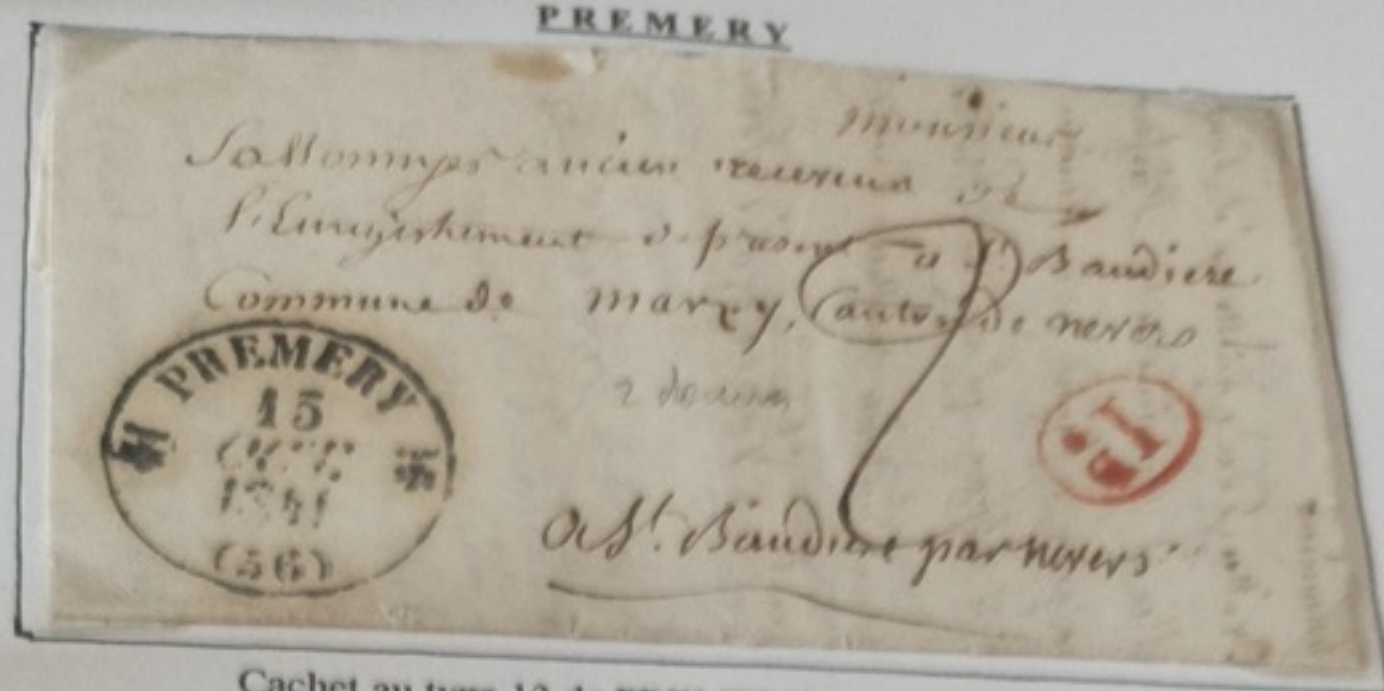 PREMERY
Monsieur
ancien receveur de
l'Enregistrement à présent à St Baudiere
Commune de Marzy, Canton de nevers
2
PREMERY
15
1841
(56)
1D
a St. Baudiere par nevers
Cachet au type 13